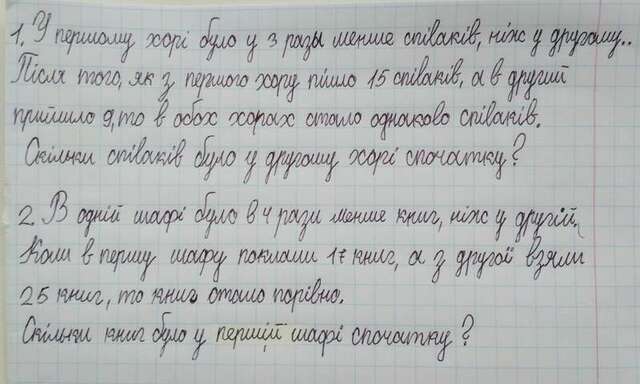 1. У першому хорі було у 3 разы менше співаків, ніж у другому..
Після того, як з першого хору пішло 15 співаків, а в другий
прийшло 9, то в обох хорах стало однаково співаків.
Скільки співаків було у другому хорі спочатку?
2. В одній шафі було в 4 рази менше книг, ніж у другій.
Коли в першу шафу поклали 17 книг, а з другої взяли
25 книг, то книг стало порівно.
Скільки книг було у першій шафі спочатку?